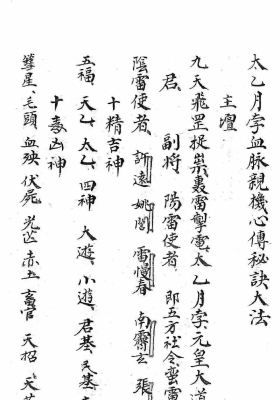 太乙月孛血脉親機心傳秘訣大法
主壇
九天飛罡捉祟轟雷掣電太乙月孛元皇大道
君 副將 陽雷使者 即五方社令蛮雷
陰雷使者 許遠 姚閭 雷慢春 南霽云 張
十精吉神
五福 天乙 太乙 四神 大遊 小遊 君基 民基
十毒凶神
彗星 毛頭 血殃 伏尸 光芒 赤土 畜官 天招 天